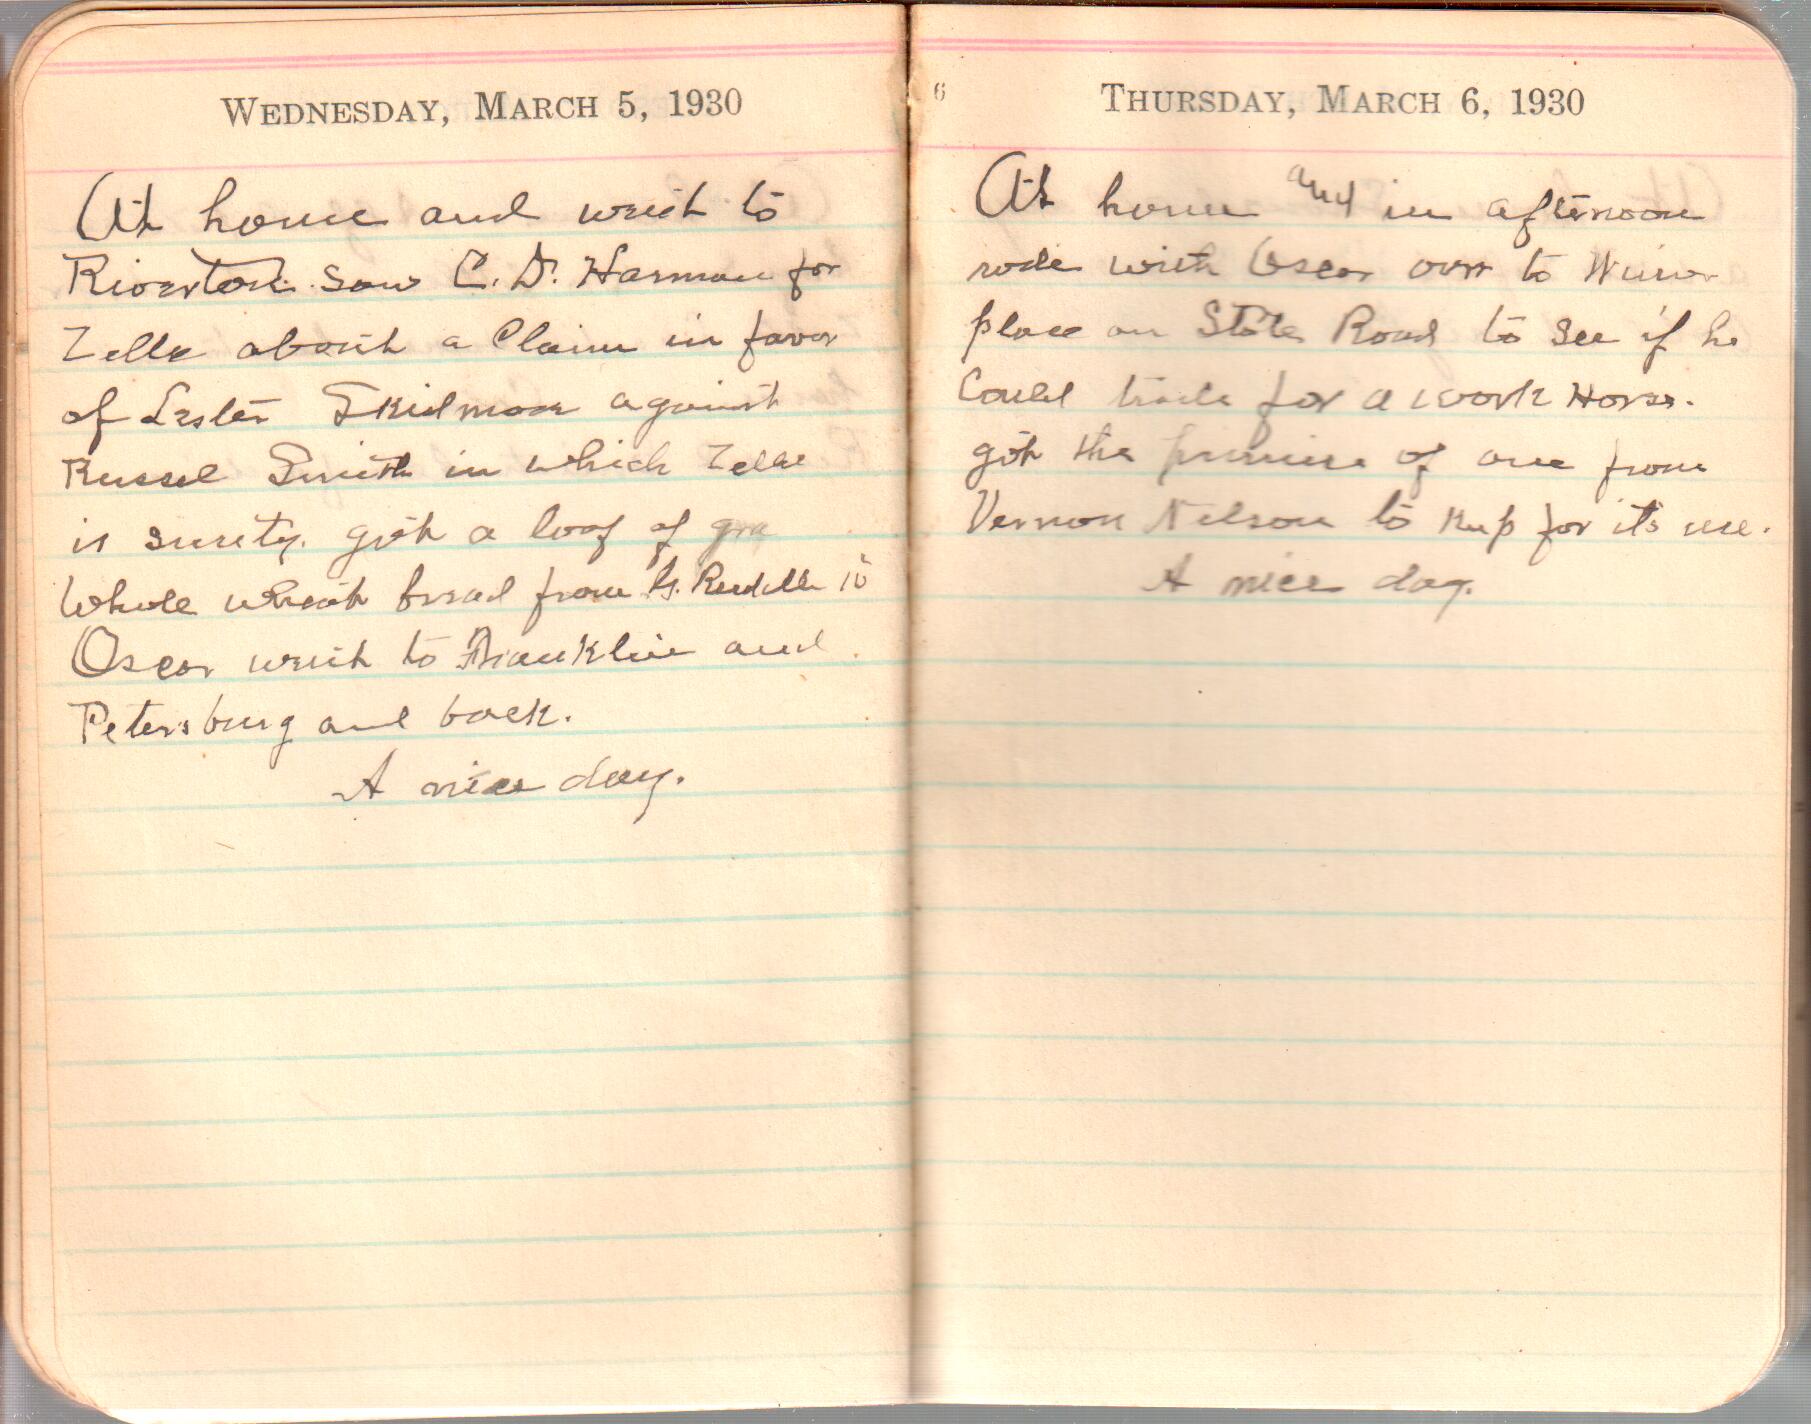 WEDNESDAY, MARCH 5, 1930
At home and went to
Riverton. Saw C. D. Harman for
Zella about a Claim in favor
of Lester Skidmore against
Russel Smith in which Zella
is surety. got a loaf of gra
Whole wheat bread from G. 10
Oscar went to Franklin and
Petersburg and back.
A nice day.
6
THURSDAY, MARCH 6, 1930
At home and in afternoon
rode with Oscar over to
place on State Road to see if he
Could trade for a work Horse.
got the promise of one from
Vernon Nelson to keep for its use.
A nice day.